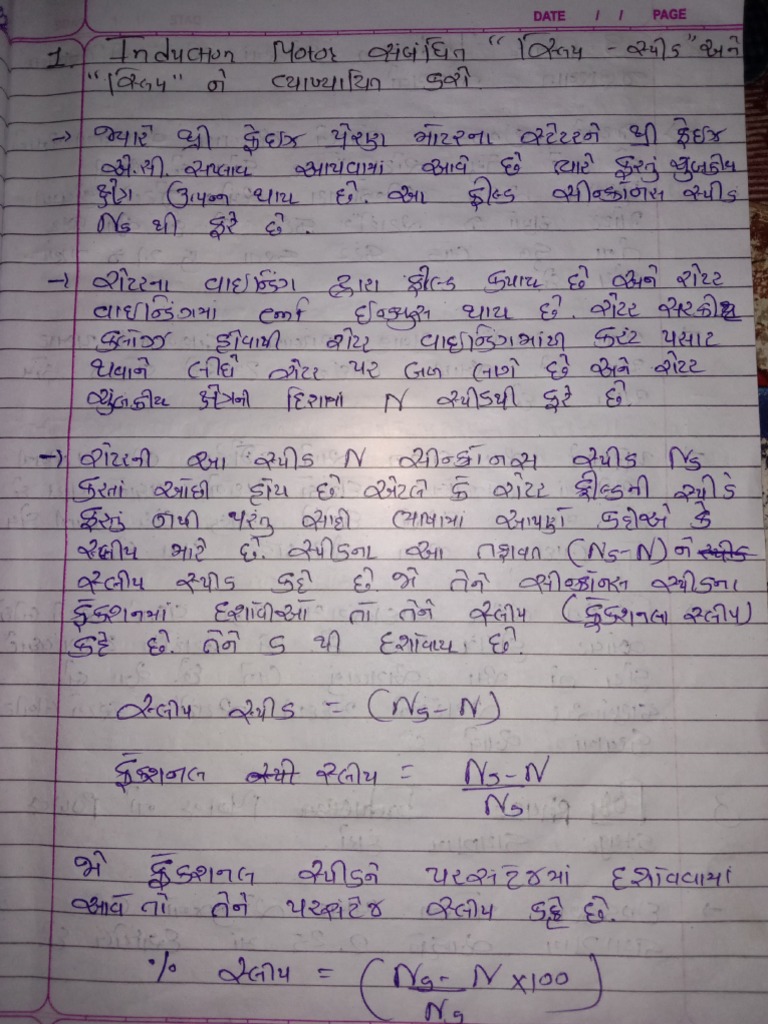 DATE / / PAGE
1. Induction Motor સબંધિત "સ્લિપ - સ્પીડ" અને
"સ્લિપ" ને વ્યાખ્યાયિત કરો.
→ જ્યારે થ્રી ફેઇઝ પ્રેરણ મોટરના સ્ટેટરને થ્રી ફેઇઝ
એ.સી. સપ્લાય આપવામાં આવે છે ત્યારે ફરતું ચુંબકીય
ક્ષેત્ર ઉત્પન્ન થાય છે. આ ફીલ્ડ સીન્ક્રોનસ સ્પીડ
Ns થી ફરે છે.
→ રોટરના વાઇન્ડિંગ દ્વારા ફીલ્ડ કપાય છે અને રોટર
વાઇન્ડિંગમાં emf ઇન્ડ્યુસ થાય છે. રોટર સરકીટ
ક્લોઝ હોવાથી રોટર વાઇન્ડિંગમાંથી કરંટ પસાર
થવાને લીધે રોટર પર બળ લાગે છે અને રોટર
ચુંબકીય ક્ષેત્રની દિશામાં N સ્પીડથી ફરે છે.
→ રોટરની આ સ્પીડ N સીન્ક્રોનસ સ્પીડ Ns
કરતાં ઓછી હોય છે એટલે કે રોટર ફીલ્ડની સ્પીડે
ફરતું નથી પરંતુ સાદી ભાષામાં આપણે કહીએ કે
સ્લીપ મારે છે. સ્પીડના આ તફાવત (Ns-N) ને સ્પીડ
સ્લીપ સ્પીડ કહે છે. જો તેને સીન્ક્રોનસ સ્પીડના
ફ્રેકશનમાં દર્શાવીએ તો તેને સ્લીપ (ફ્રેકશનલ સ્લીપ)
કહે છે. તેને S થી દર્શાવાય છે.
સ્લીપ સ્પીડ = (Ns-N)
ફ્રેકશનલ સ્લીપ = Ns-N
Ns
જો ફ્રેકશનલ સ્પીડને પરસેંટેજમાં દર્શાવવામાં
આવે તો તેને પરસેંટેજ સ્લીપ કહે છે.
% સ્લીપ = (Ns- N ×100)
Ns